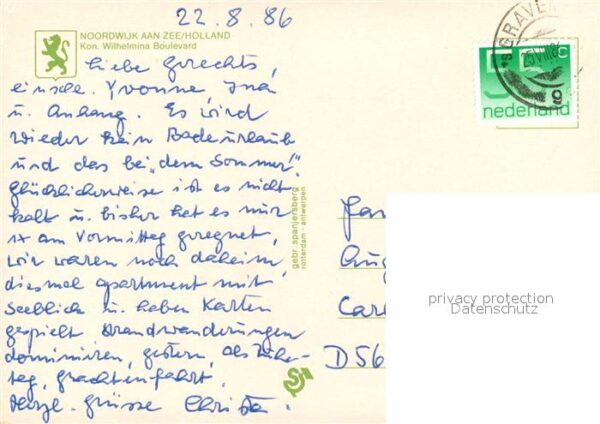 22.8.86
NOORDWIJK AAN ZEE/HOLLAND
Kon. Wilhelmina Boulevard
Liebe Gerechts,
einschl. Yvonne, Ina
u. Anhang. Es wird
wieder kein Badeurlaub
und das bei "dem Sommer"!
Glücklicherweise ist es nicht
kalt u. bisher hat es nur
1x am Vormittag geregnet,
wir waren noch daheim,
diesmal apartment mit
Seeblick u. haben Karten
gespielt Strandwanderungen
dominieren, gestern, als
tag, Grachtenfahrt.
Herzl. Grüsse Christa.
gebr. spanjersberg
rotterdam - antwerpen
'S GRAVEN
25.VIII.86
C
nederland
Fam
Aug
Car
D 56
privacy protection
Datenschutz